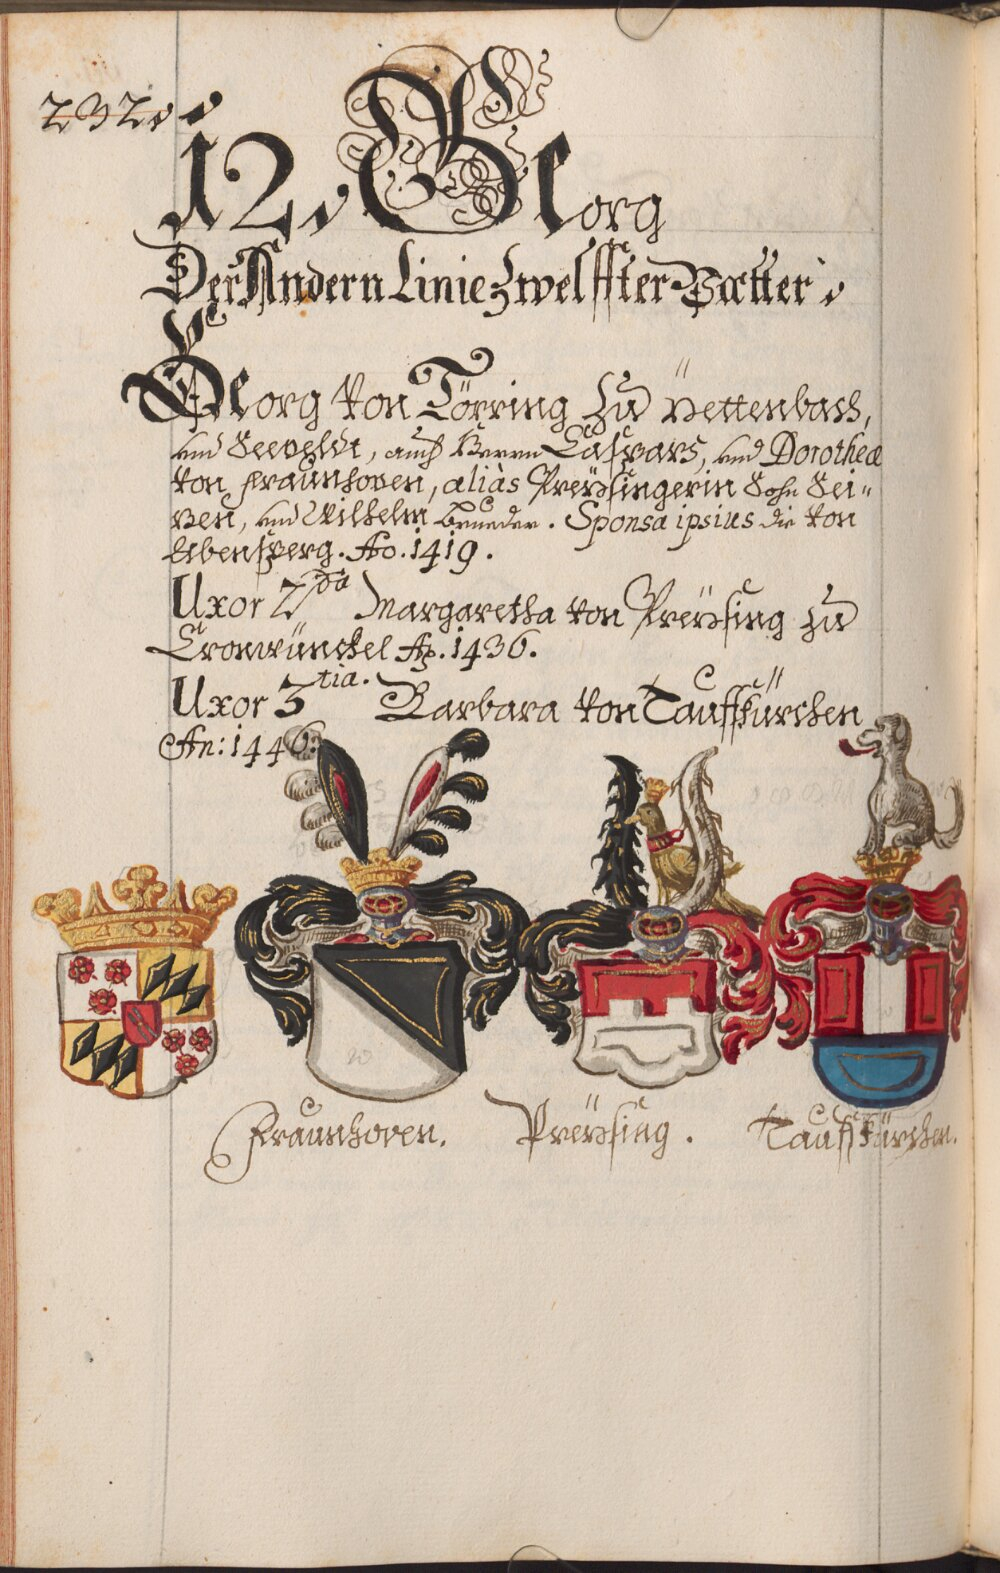 232.
12. Georg
Der Andern Linie Zwelffter Vatter.
Georg von Törring zu Pettenbach,
und Seeveldt, auch Herrn Caspars, und Dorothea
von Fraunhoven, aliàs Preÿsingerin Sohn Sei-
zen, und Wilhelm Brueder. Sponsa ipsius die von
Abensperg. Ao. 1419.
Uxor 2da Margaretha von Preÿsing zu
Cronwünckel Ao. 1436.
Uxor 3tia. Barbara von Tauffkürchen
An: 1446.
Fraunhoven. Preÿsing. Tauffkürchen.